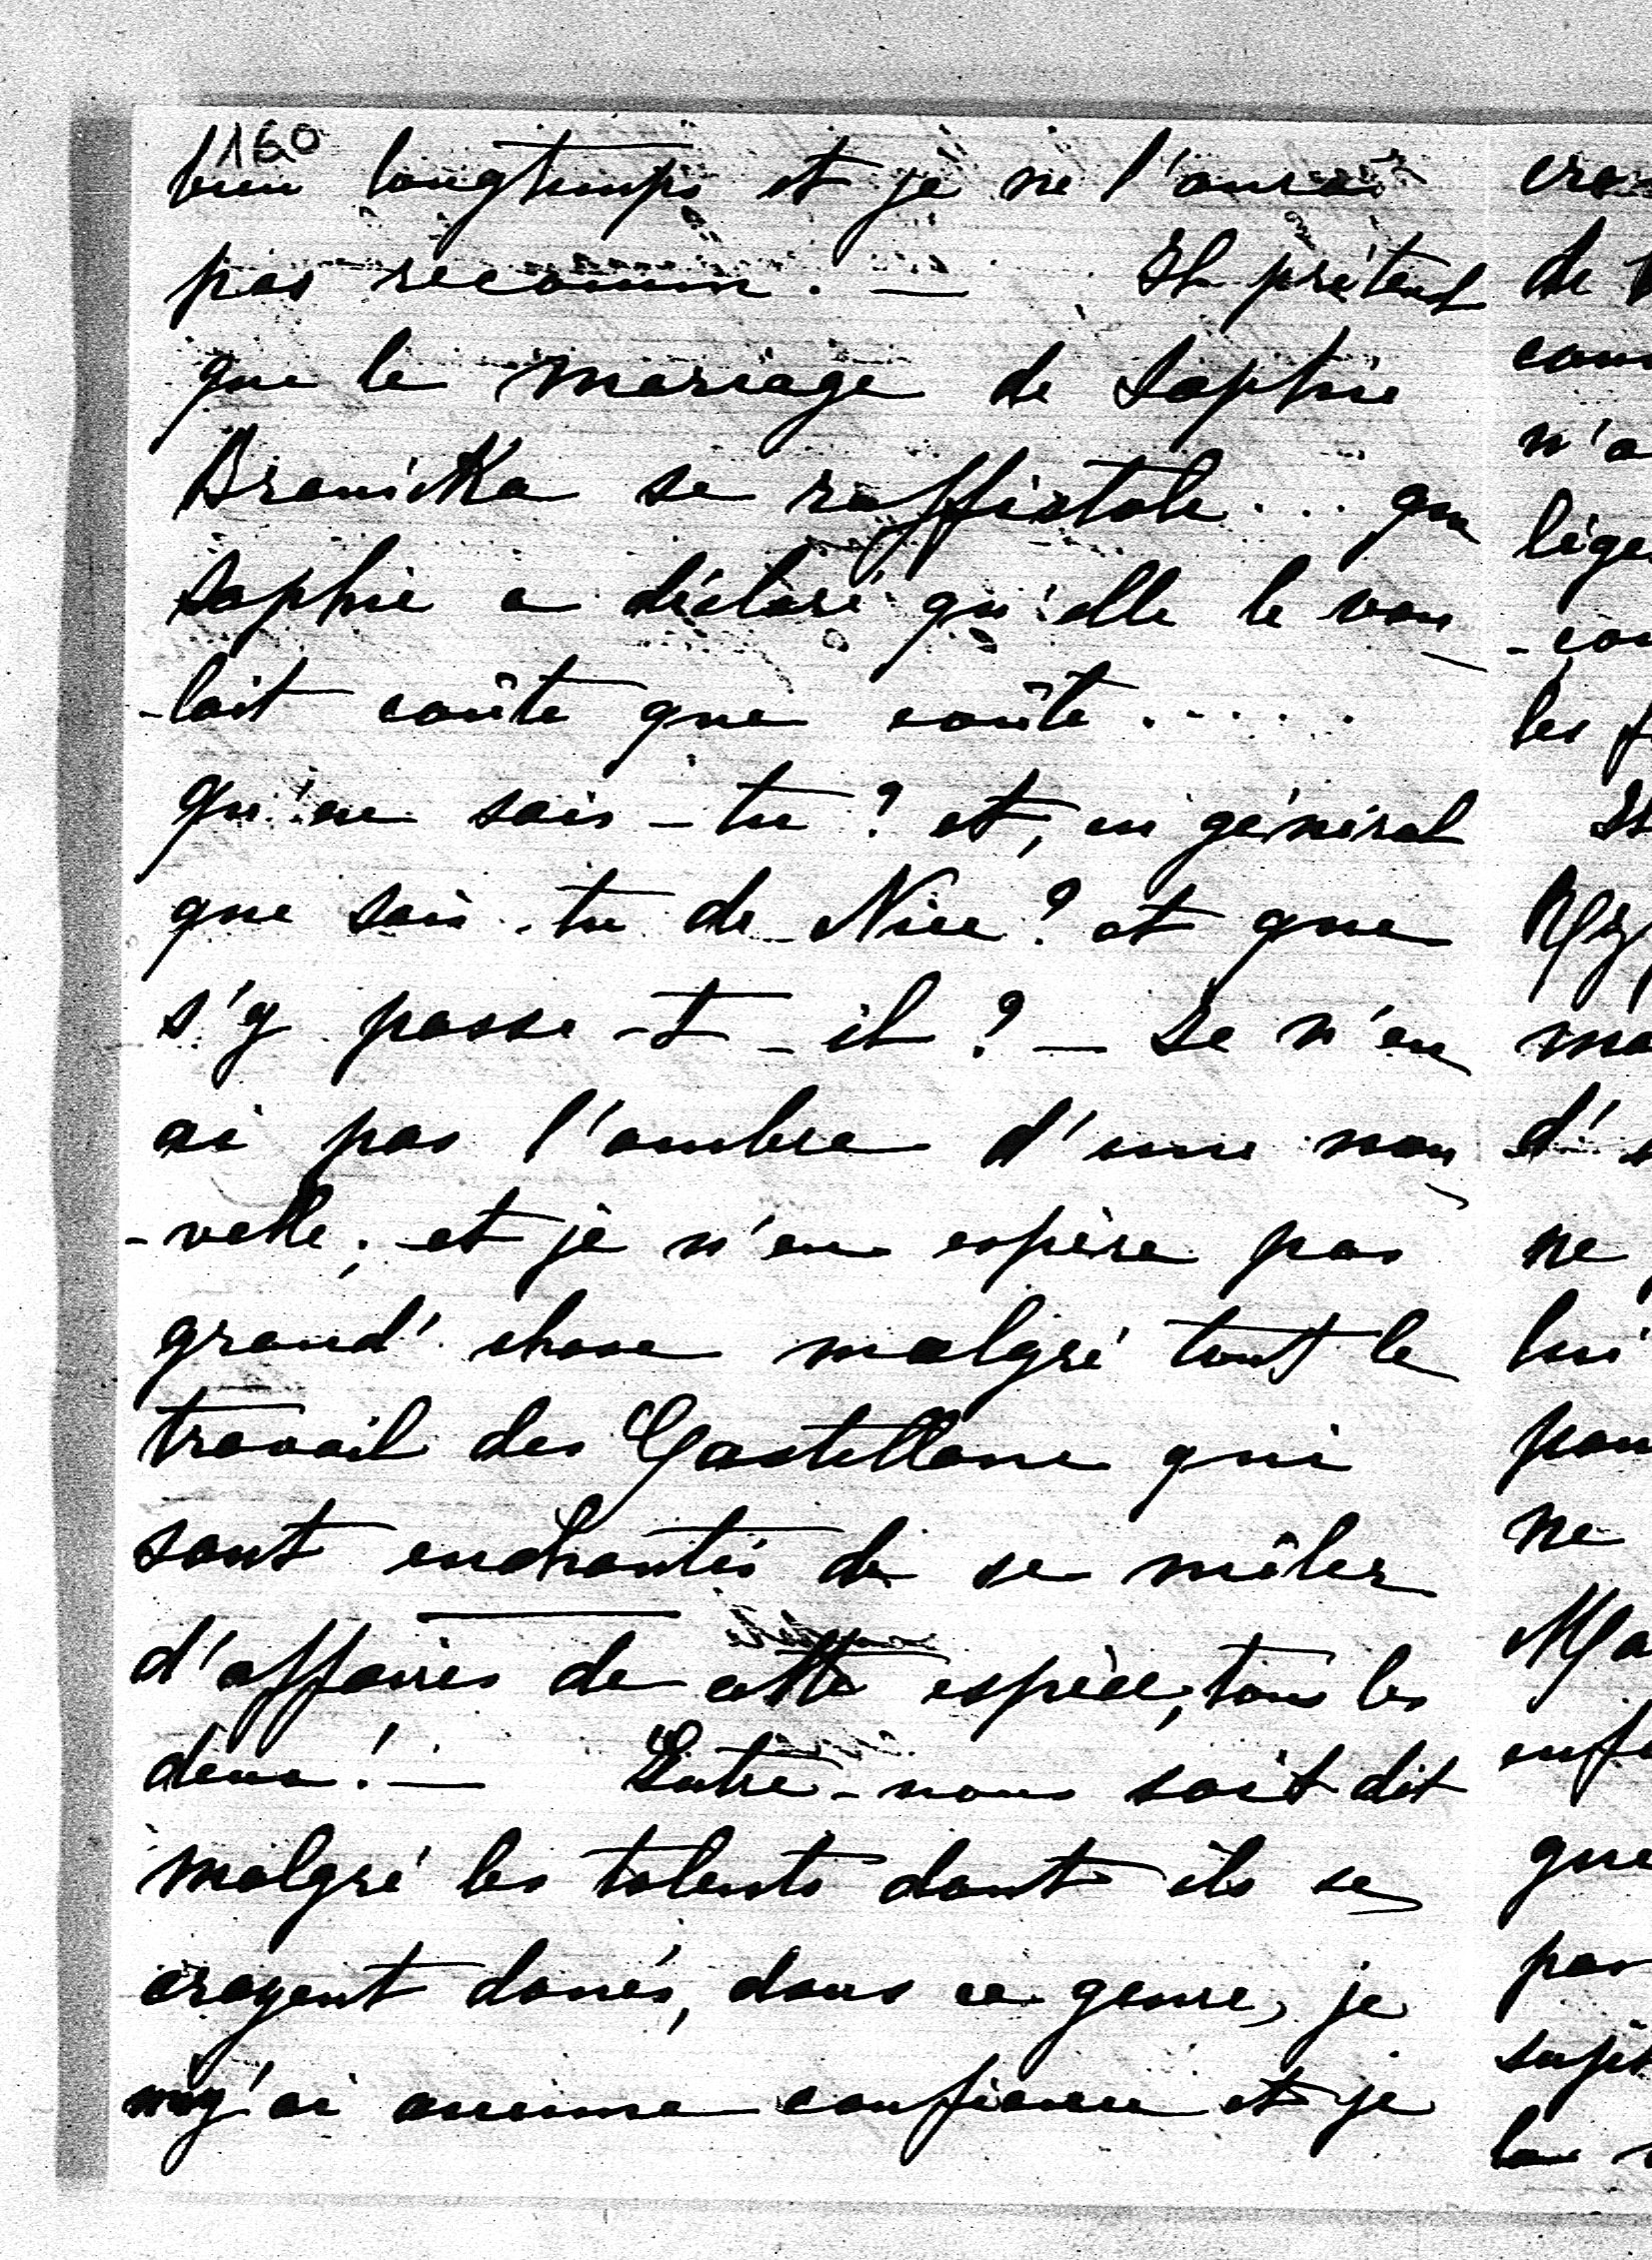 1160
bien longtemps et je ne l'aurai
pas reconnu. — Il prétend
que le mariage de Sophie
Branicka se raffistole... que
Sophie a déclaré qu'elle le vou
-lait coûte que coûte.....
qu'en sais-tu? et, en général
que sais-tu de Nice? et que
s'y passe-t-il? — Je n'en
ai pas l'ombre d'une nou
-velle; et je n'en espère pas
grand'chose malgré tout le
travail des Castellane qui
sont enchantés de se mêler
d'affaires de cette espèce, tous les
deux! — Entre-nous soit dit
malgré les talents dont ils se
croyent doués, dans ce genre, je
n'y ai aucune confiance et je
de
n'a
lége
-cou
les
d'
ne
lui
ne
que
pas